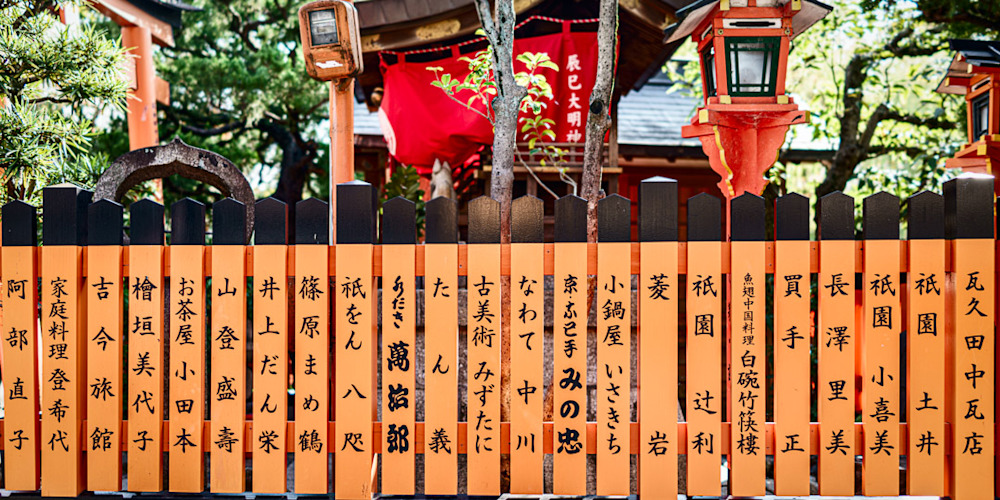 辰巳大明神
瓦久田中瓦店
祇園 土井
祇園 小喜美
長澤里美
買手 正
魚翅中国料理 白碗竹筷樓
祇園 辻利
菱岩
小鍋屋いさきち
京ふじ手 みの忠
なわて 中川
古美術 みずたに
たん義
のだき 萬治郎
祇をん 八咫
篠原まめ鶴
井上だん栄
山登盛壽
お茶屋 小田本
檜垣美代子
吉今旅館
家庭料理 登希代
阿部直子